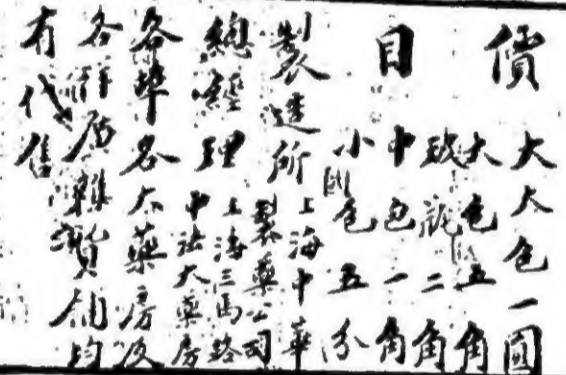 價目
大大包一圓
大包五角
玻瓶二角
中包一角
小包五分
製造所 上海中華製藥公司
總經理 上海三馬路中法大藥房
各埠各大藥房及
各洋廣雜貨舖均
有代售